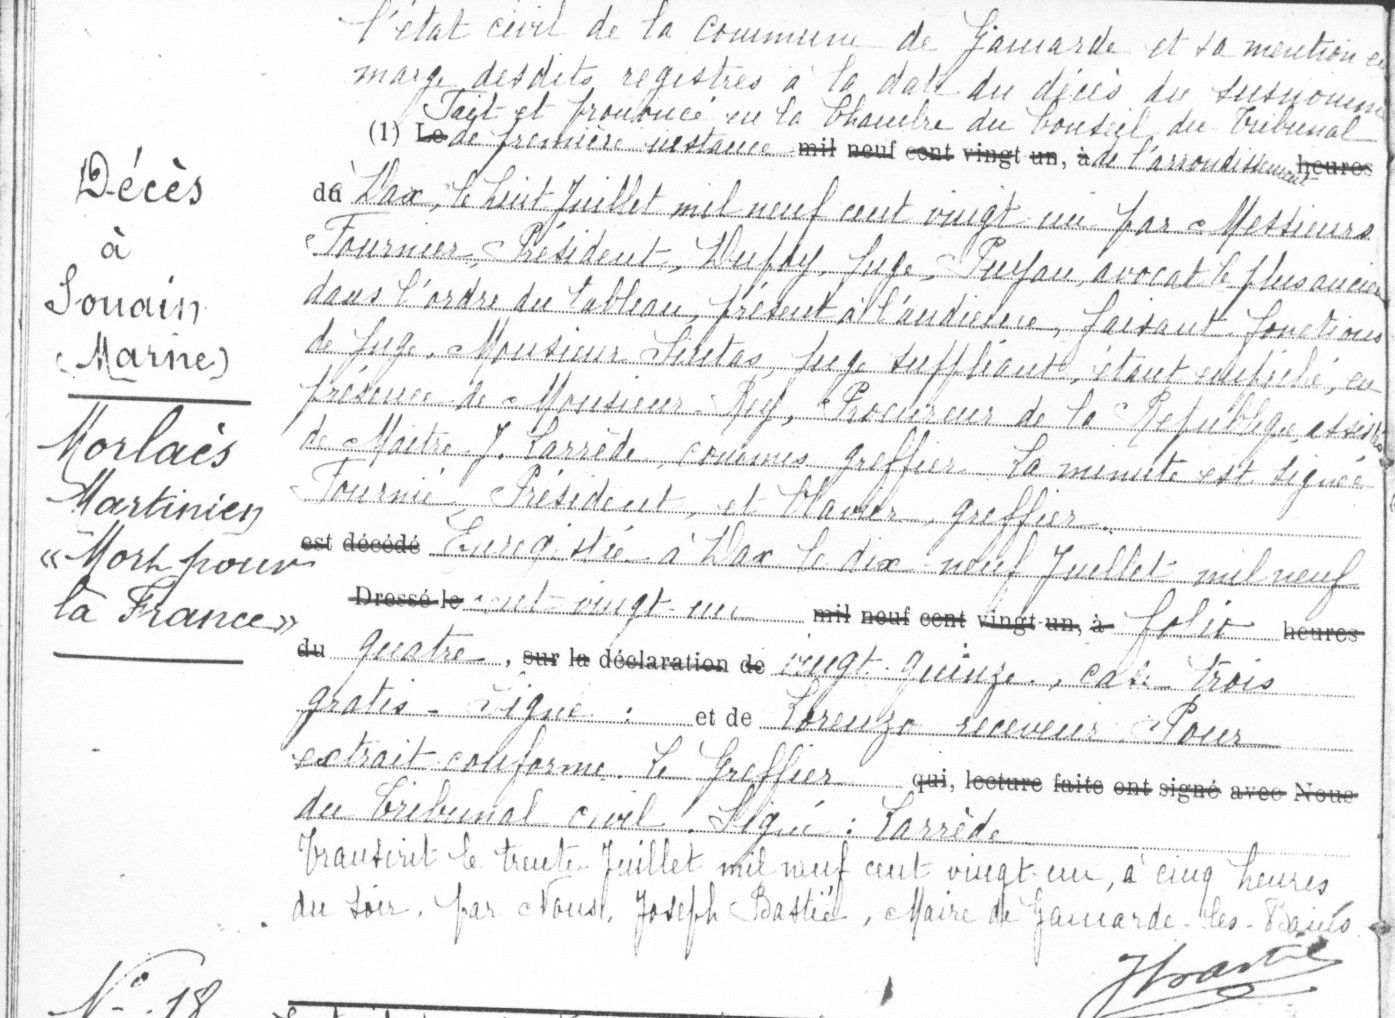 l'état civil de la commune de Gamarde et sa mention en
marge desdits registres à la date du décès du susnommé
Fait et prononcé en la Chambre du Conseil du Tribunal
(1) Le de première instance mil neuf cent vingt un, à de l'arrondissement heures
du Dax, le huit Juillet mil neuf cent vingt un par Messieurs
Fournier, Président, Dufay, Juge, Puyau, avocat le plus ancien
dans l'ordre du tableau, présent à l'audience, faisant fonctions
de Juge, Monsieur juge suppléant, étant empêché, en
présence de Monsieur Rey, Procureur de la République, assistés
de Maître J. Larrède, commis greffier. La minute est signée
Fournié, Président, et greffier.
est décédé Enregistré à Dax le dix neuf Juillet mil neuf
Dressé le cent vingt un mil neuf cent vingt un, à folio heures
du quatre, sur la déclaration de vingt quinze, case trois
gratis - Signé : et de Lorenzo receveur Pour
extrait conforme. Le Greffier qui, lecture faite ont signé avec Nous
du Tribunal civil. Signé : Larrède
Transcrit le trente Juillet mil neuf cent vingt-un, à cinq heures
du soir, par Nous, Joseph Bastié, Maire de Gamarde-les-Bains
Décès
à
Souain
(Marne)
Morlaès
Martinien
« Mort pour
la France »
N° 18